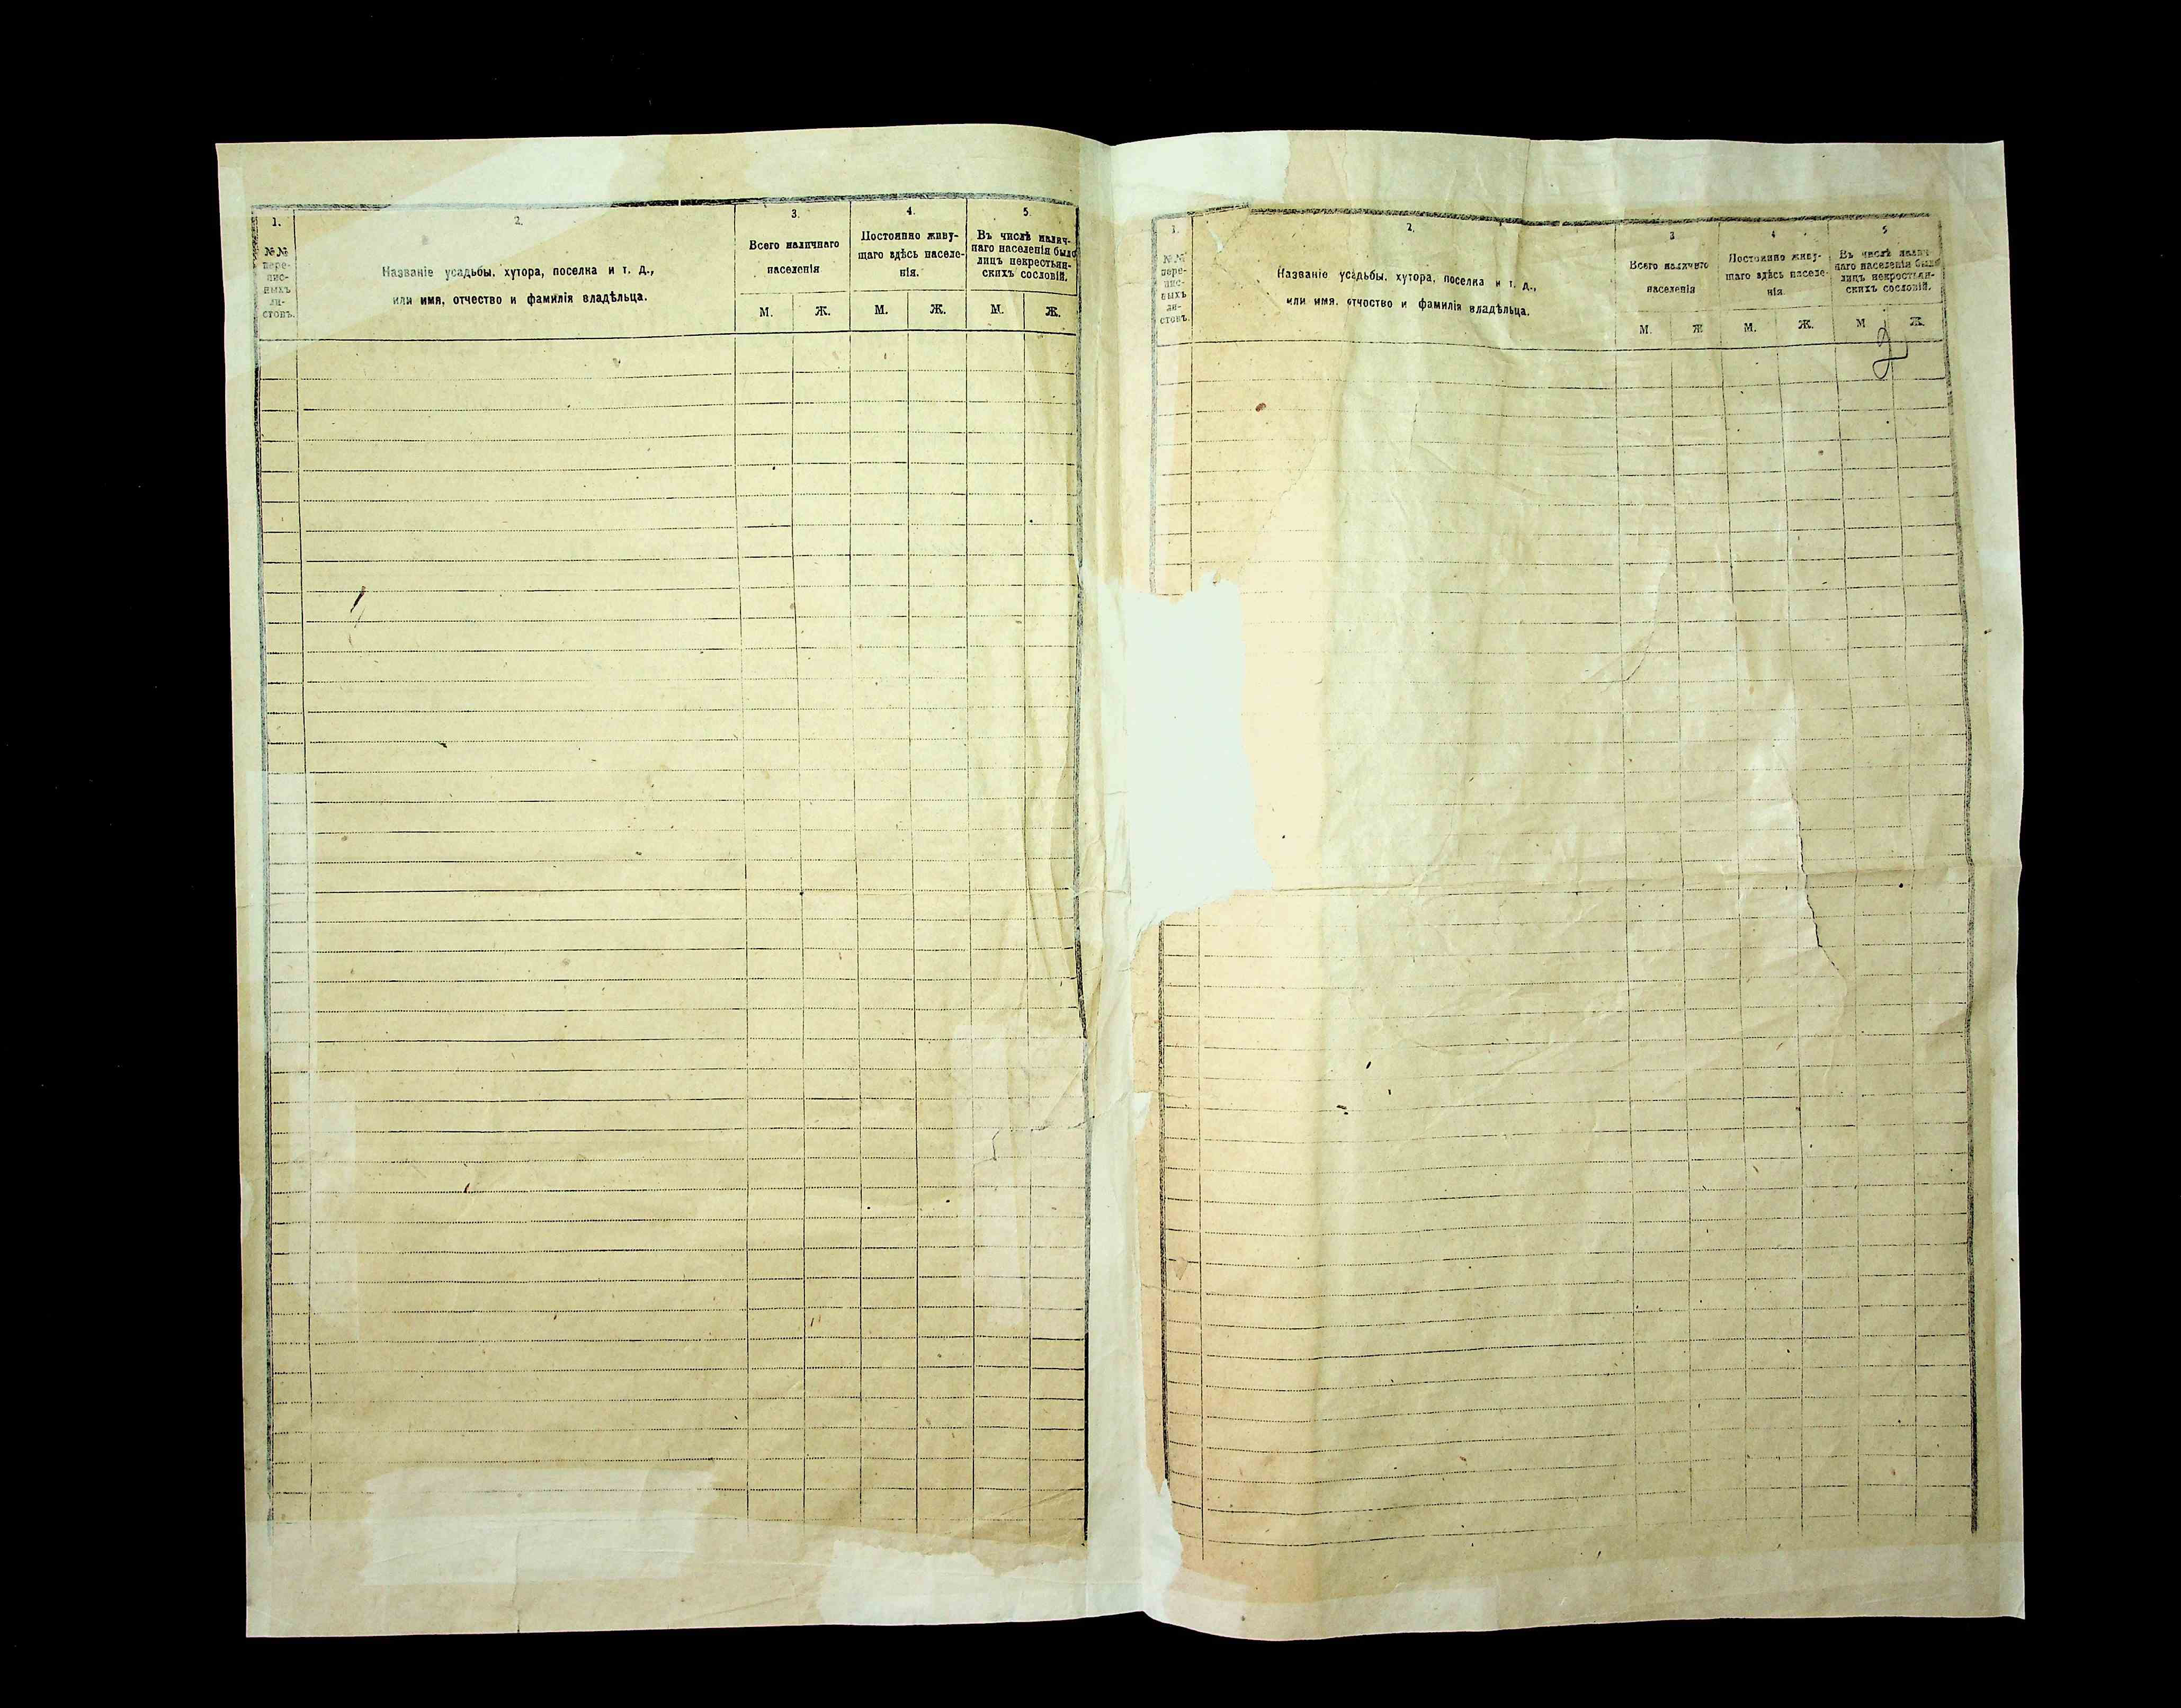 1.
№№
пере-
пис-
ныхъ
ли-
стовъ.
2.
Названіе усадьбы, хутора, поселка и т. д.,
или имя, отчество и фамилія владѣльца.
3.
Всего наличнаго
населенія
М. Ж.
4.
Постоянно живу-
щаго здѣсь населе-
нія.
М. Ж.
5.
Въ числѣ налич-
наго населенія было
лицъ некрестьян-
скихъ сословій.
М. Ж.
1.
№№
пере-
пис-
ныхъ
ли-
стовъ.
2.
Названіе усадьбы, хутора, поселка и т. д.,
или имя, отчество и фамилія владѣльца.
3
Всего наличнаго
населенія
М. Ж
4
Постоянно живу-
щаго здѣсь населе-
нія
М. Ж.
5
Въ числѣ налич-
наго населенія было
лицъ некрестьян-
скихъ сословій.
М Ж.
2